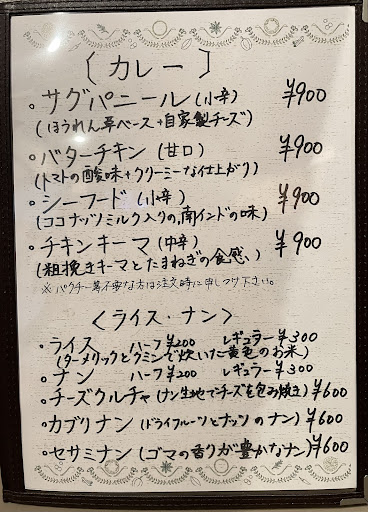 〔カレー〕
・サグパニール(小辛) ¥900
(ほうれん草ベース+自家製チーズ)
・バターチキン(甘口) ¥900
(トマトの酸味+クリーミーな仕上がり)
・シーフード(小辛) ¥900
(ココナッツミルク入りの,南インドの味)
・チキンキーマ(中辛) ¥900
(粗挽きキーマとたまねぎの食感)
※パクチー等不要な方は注文時に申しつけ下さい。
〈ライス・ナン〉
・ライス ハーフ¥200 レギュラー¥300
(ターメリックとクミンで炊いた黄色のお米)
・ナン ハーフ¥200 レギュラー¥300
・チーズクルチャ(ナン生地でチーズを包み焼き)¥600
・カブリナン(ドライフルーツとナッツのナン)¥600
・セサミナン(ゴマの香りが豊かなナン)¥600